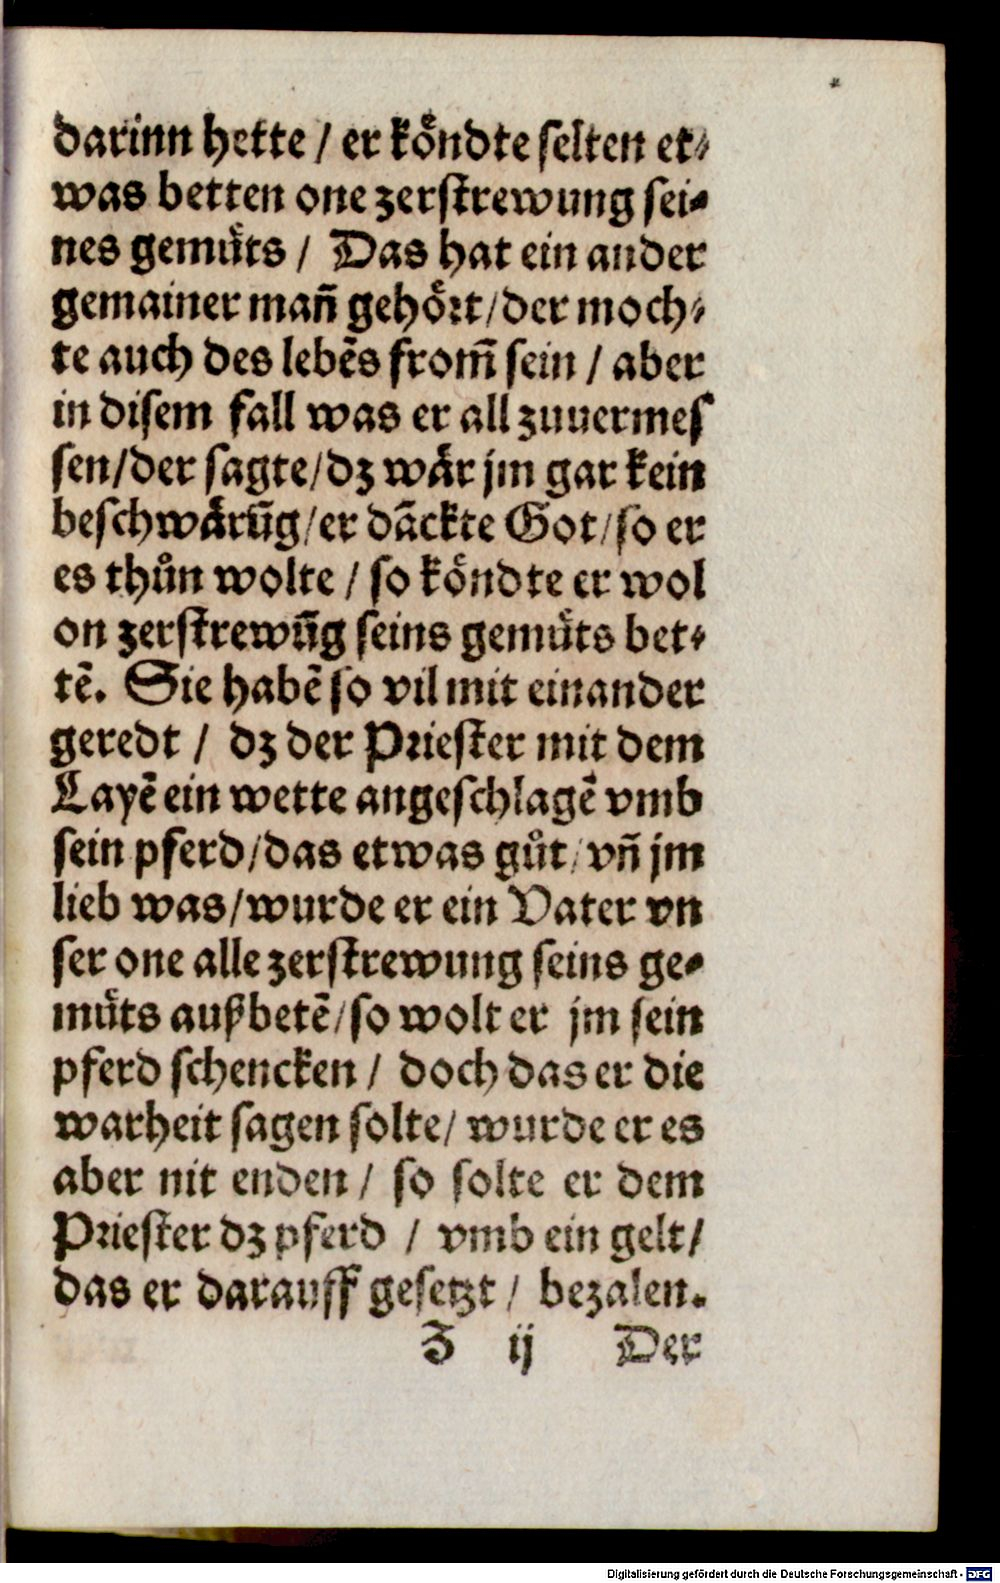 darinn hette / er koͤndte selten et⸗
was betten one zerstrewung sei⸗
nes gemuͤts / Das hat ein ander
gemainer mañ gehoͤrt / der moch⸗
te auch des lebẽs from̃ sein / aber
in disem fall was er all zuuermes
sen / der sagte / dz waͤr jm gar kein
beschwaͤrũg / er dãckte Got / so er
es thůn wolte / so koͤndte er wol
on zerstrewũg seins gemuͤts bet⸗
tẽ. Sie habẽ so vil mit einander
geredt / dz der Priester mit dem
Layẽ ein wette angeschlagẽ vmb
sein pferd / das etwas gůt / vñ jm
lieb was / wurde er ein Vater vn
ser one alle zerstrewung seins ge⸗
muͤts außbetẽ / so wolt er jm sein
pferd schencken / doch das er die
warheit sagen solte / wurde er es
aber nit enden / so solte er dem
Priester dz pferd / vmb ein gelt /
das er darauff gesetzt / bezalen.
Z ij Der
Digitalisierung gefördert durch die Deutsche Forschungsgemeinschaft - DFG